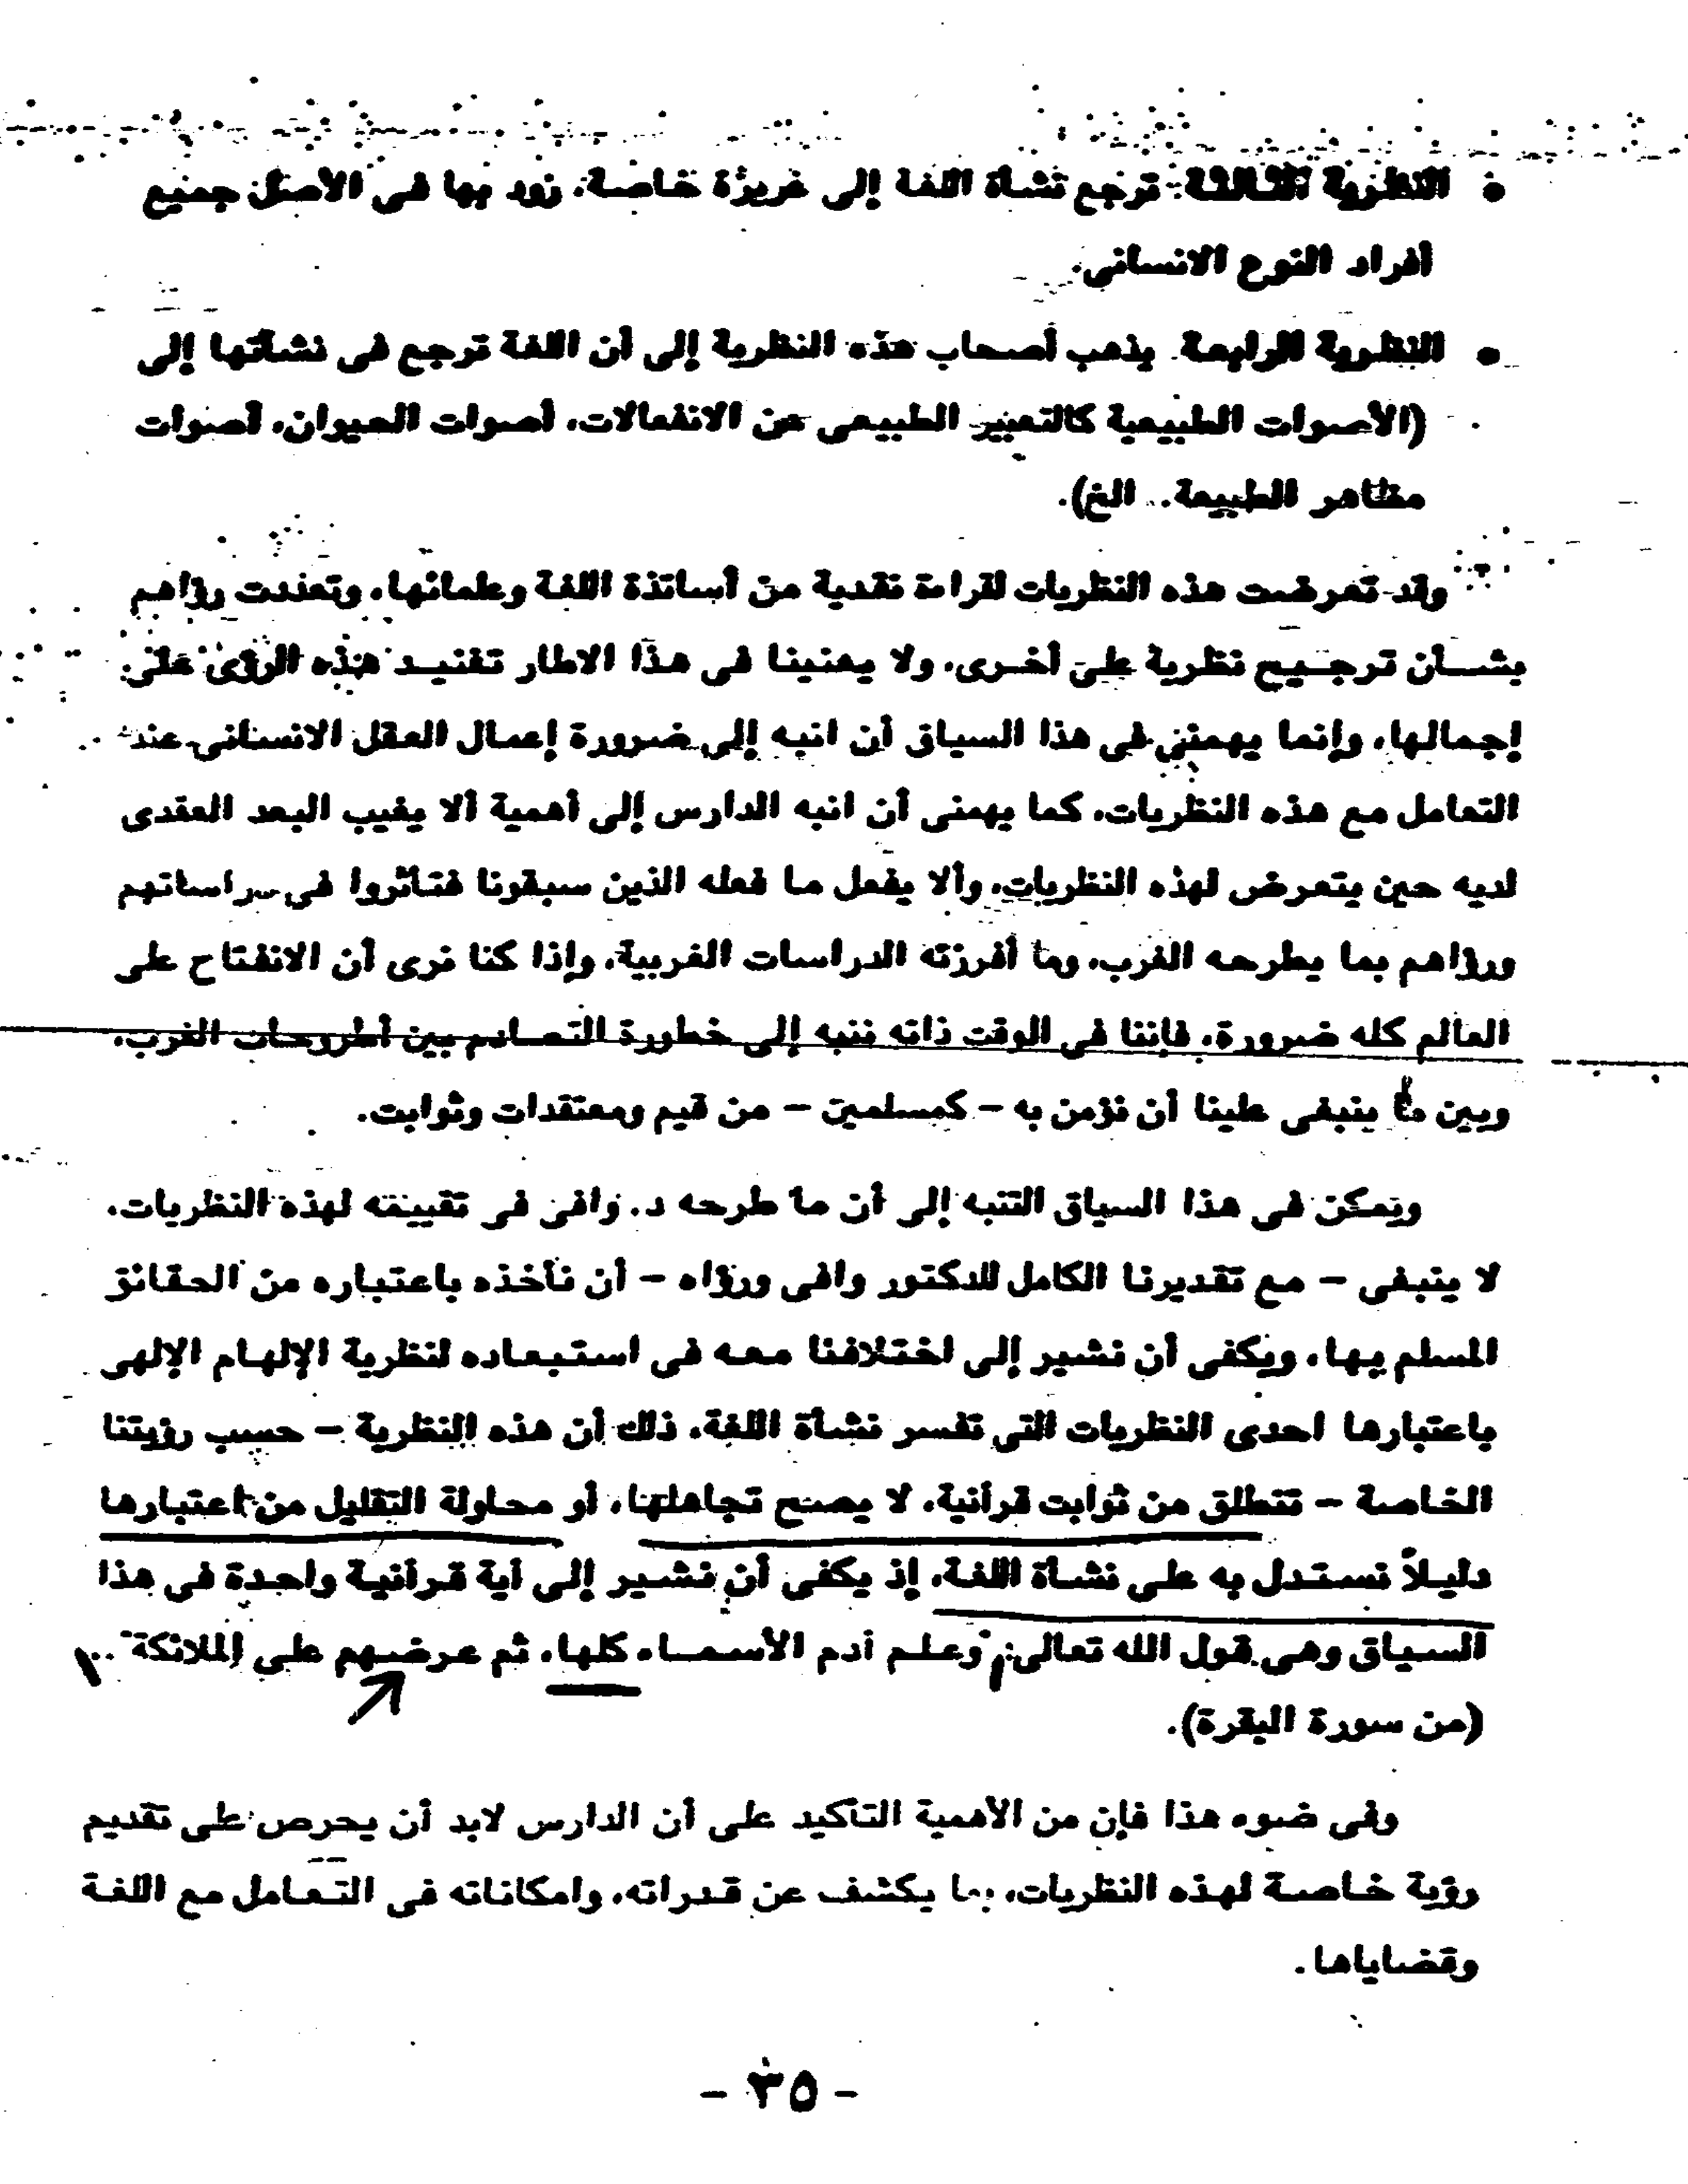 • النظرية الثالثة: ترجع نشأة اللغة إلى غريزة خاصة، زود بها فى الأصل جميع
أفراد النوع الانسانى.
• النظرية الرابعة. يذهب أصحاب هذه النظرية إلى أن اللغة ترجع فى نشأتها إلى
(الأصوات الطبيعية كالتعبير الطبيعى عن الانفعالات، أصوات الحيوان، أصوات
مظاهر الطبيعة.. الخ).
وقد تعرضت هذه النظريات لقراءة نقدية من أساتذة اللغة وعلمائها، وتعددت رؤاهم
بشأن ترجيح نظرية على أخرى، ولا يعنينا فى هذا الاطار تفنيد هذه الرؤى على
إجمالها، وإنما يهمنى فى هذا السياق أن انبه إلى ضرورة إعمال العقل الانسانى عند
التعامل مع هذه النظريات، كما يهمنى أن انبه الدارس إلى أهمية ألا يغيب البعد العقدى
لديه حين يتعرض لهذه النظريات، وألا يفعل ما فعله الذين سبقونا فتأثروا فى دراساتهم
ورؤاهم بما يطرحه الغرب، وما أفرزته الدراسات الغربية، وإذا كنا نرى أن الانفتاح على
العالم كله ضرورة، فإننا فى الوقت ذاته ننبه إلى خطورة التصادم بين أطروحات الغرب،
وبين ما ينبغى علينا أن نؤمن به – كمسلمين – من قيم ومعتقدات وثوابت.
ويمكن فى هذا السياق التنبه إلى أن ما طرحه د. وافى فى تقييمه لهذه النظريات،
لا ينبغى – مع تقديرنا الكامل للدكتور وافى ورؤاه – أن نأخذه باعتباره من الحقائق
المسلم بها، ويكفى أن نشير إلى اختلافنا معه فى استبعاده لنظرية الإلهام الإلهى
باعتبارها احدى النظريات التى تفسر نشأة اللغة، ذلك أن هذه النظرية – حسب رؤيتنا
الخاصة – تنطلق من ثوابت قرآنية، لا يصح تجاهلها، أو محاولة التقليل من اعتبارها
دليلاً نستدل به على نشأة اللغة، إذ يكفى أن نشير إلى آية قرآنية واحدة فى هذا
السياق وهى قول الله تعالى: "وعلم آدم الأسماء كلها، ثم عرضهم على الملائكة" ..
(من سورة البقرة).
وفى ضوء هذا فإن من الأهمية التأكيد على أن الدارس لابد أن يحرص على تقديم
رؤية خاصة لهذه النظريات، بما يكشف عن قدراته، وامكاناته فى التعامل مع اللغة
وقضاياها.
- ٣٥ -